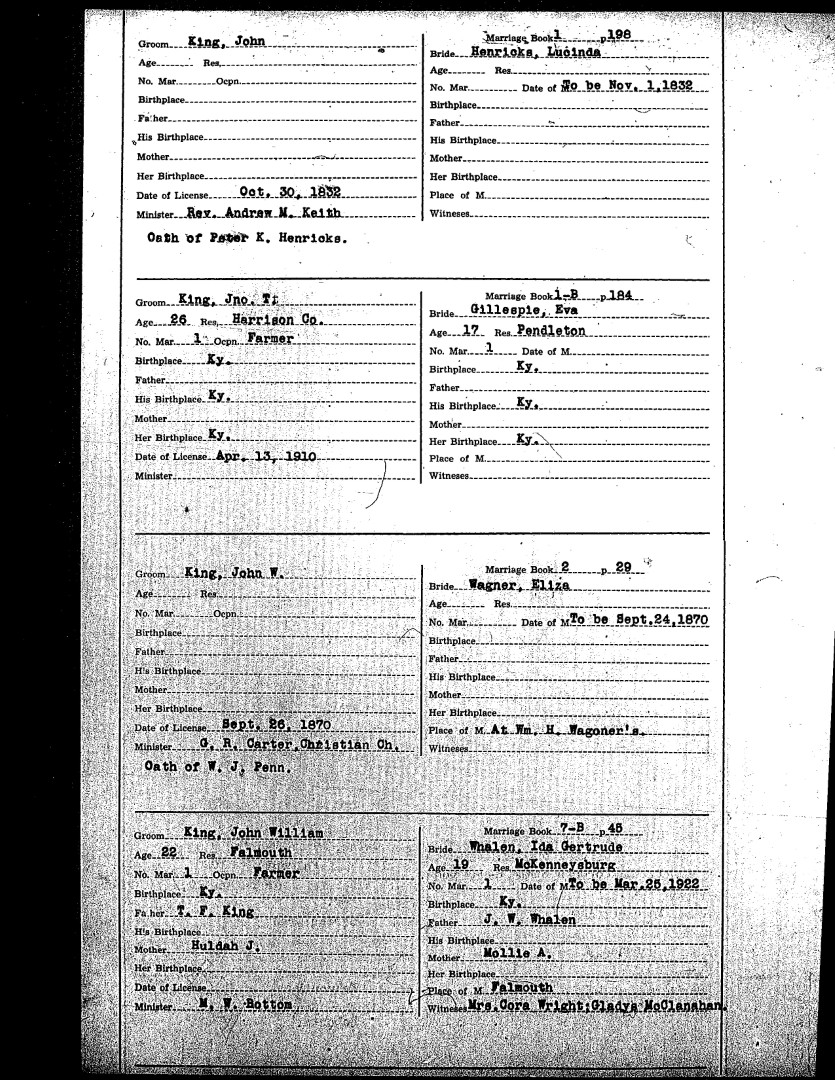 Groom King, John
Age Res.
No. Mar. Ocpn.
Birthplace
Father
His Birthplace
Mother
Her Birthplace
Date of License Oct. 30, 1832
Minister Rev. Andrew M. Keith
Oath of Peter K. Henricks.
Marriage Book 1 p. 198
Bride Henricks, Lucinda
Age Res.
No. Mar. Date of M. To be Nov. 1, 1832
Birthplace
Father
His Birthplace
Mother
Her Birthplace
Place of M.
Witneses
Groom King, Jno. T.
Age 26 Res. Harrison Co.
No. Mar. 1 Ocpn. Farmer
Birthplace Ky.
Father
His Birthplace Ky.
Mother
Her Birthplace Ky.
Date of License Apr. 13, 1910
Minister
Marriage Book 1-B p. 184
Bride Gillespie, Eva
Age 17 Res. Pendleton
No. Mar. 1 Date of M.
Birthplace Ky.
Father
His Birthplace Ky.
Mother
Her Birthplace Ky.
Place of M.
Witneses
Groom King, John W.
Age Res.
No. Mar. Ocpn.
Birthplace
Father
His Birthplace
Mother
Her Birthplace
Date of License Sept. 26, 1870
Minister G. R. Carter, Christian Ch.
Oath of W. J. Penn.
Marriage Book 2 p. 29
Bride Wagner, Eliza
Age Res.
No. Mar. Date of M. To be Sept. 24, 1870
Birthplace
Father
His Birthplace
Mother
Her Birthplace
Place of M. At Wm. H. Wagoner's.
Witneses
Groom King, John William
Age 22 Res. Falmouth
No. Mar. 1 Ocpn. Farmer
Birthplace Ky.
Father T. F. King
His Birthplace
Mother Huldah J.
Her Birthplace
Date of License
Minister M. W. Bottom
Marriage Book 7-B p. 45
Bride Whalen, Ida Gertrude
Age 19 Res. McKenneysburg
No. Mar. 1 Date of M. To be Mar. 25, 1922
Birthplace Ky.
Father J. W. Whalen
His Birthplace
Mother Mollie A.
Her Birthplace
Place of M. Falmouth
Witneses Mrs. Cora Wright; Gladys McClanahan.